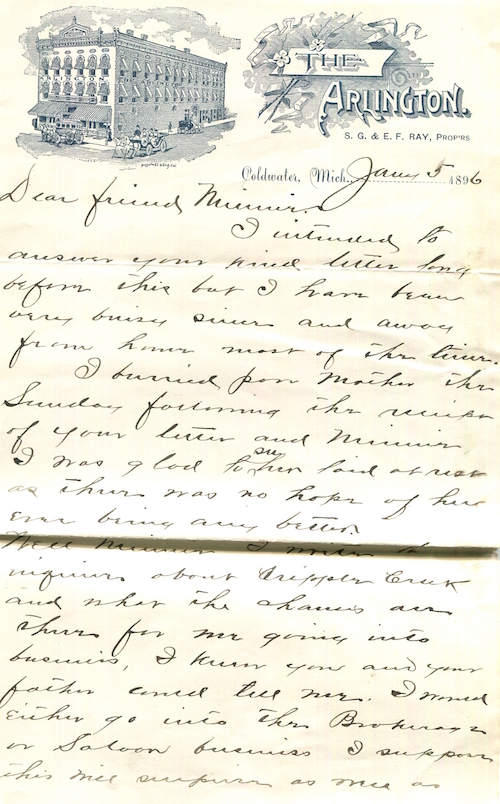 ARLINGTON
THE
ARLINGTON.
S. G. & E. F. RAY, PROP'RS
Coldwater, Mich. Jany 5 1896
Dear friend Minnie.
I intended to
answer your kind letter long
before this but I have been
very busy since and away
from home most of the time.
I burried poor Mother the
Sunday following the receipt
of your letter and Minnie
I was glad to see her laid at rest
as there was no hope of her
ever being any better.
Well Minnie I write to
inquire about Cripple Creek
and what the chances are
there for me going into
business, I know you and your
father could tell me. I would
either go into the Brokerage
or Saloon business I suppose
this will surprise as well as